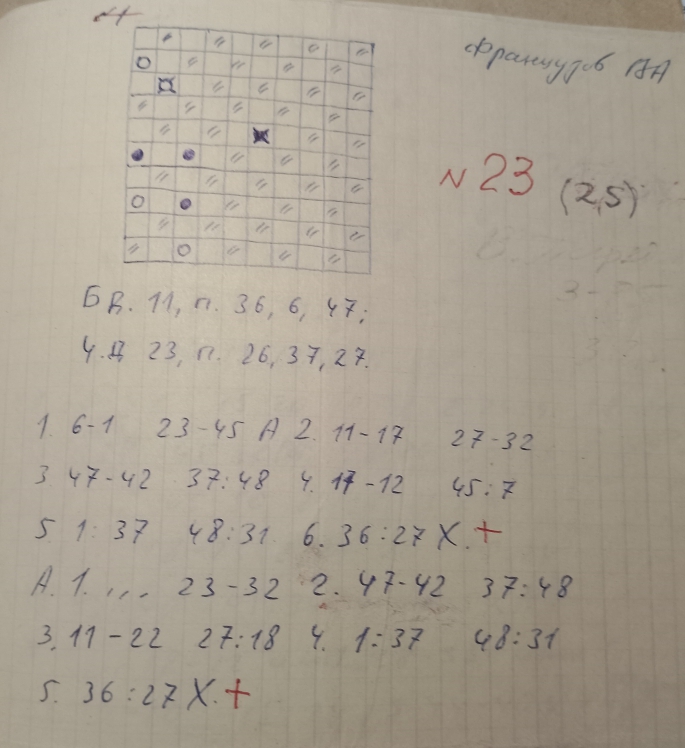 Французов АА
N 23 (2,5)
Б Д. 11, п. 36, 6, 47;
Ч.Д 23, п. 26, 37, 27.
1. 6-1 23-45 А 2. 11-17 27-32
3. 47-42 37:48 4. 17-12 45:7
5. 1:37 48:31. 6. 36:27 X.+
А. 1. ... 23-32 2. 47-42 37:48
3. 11-22 27:18 4. 1:37 48:31
5. 36:27 X.+